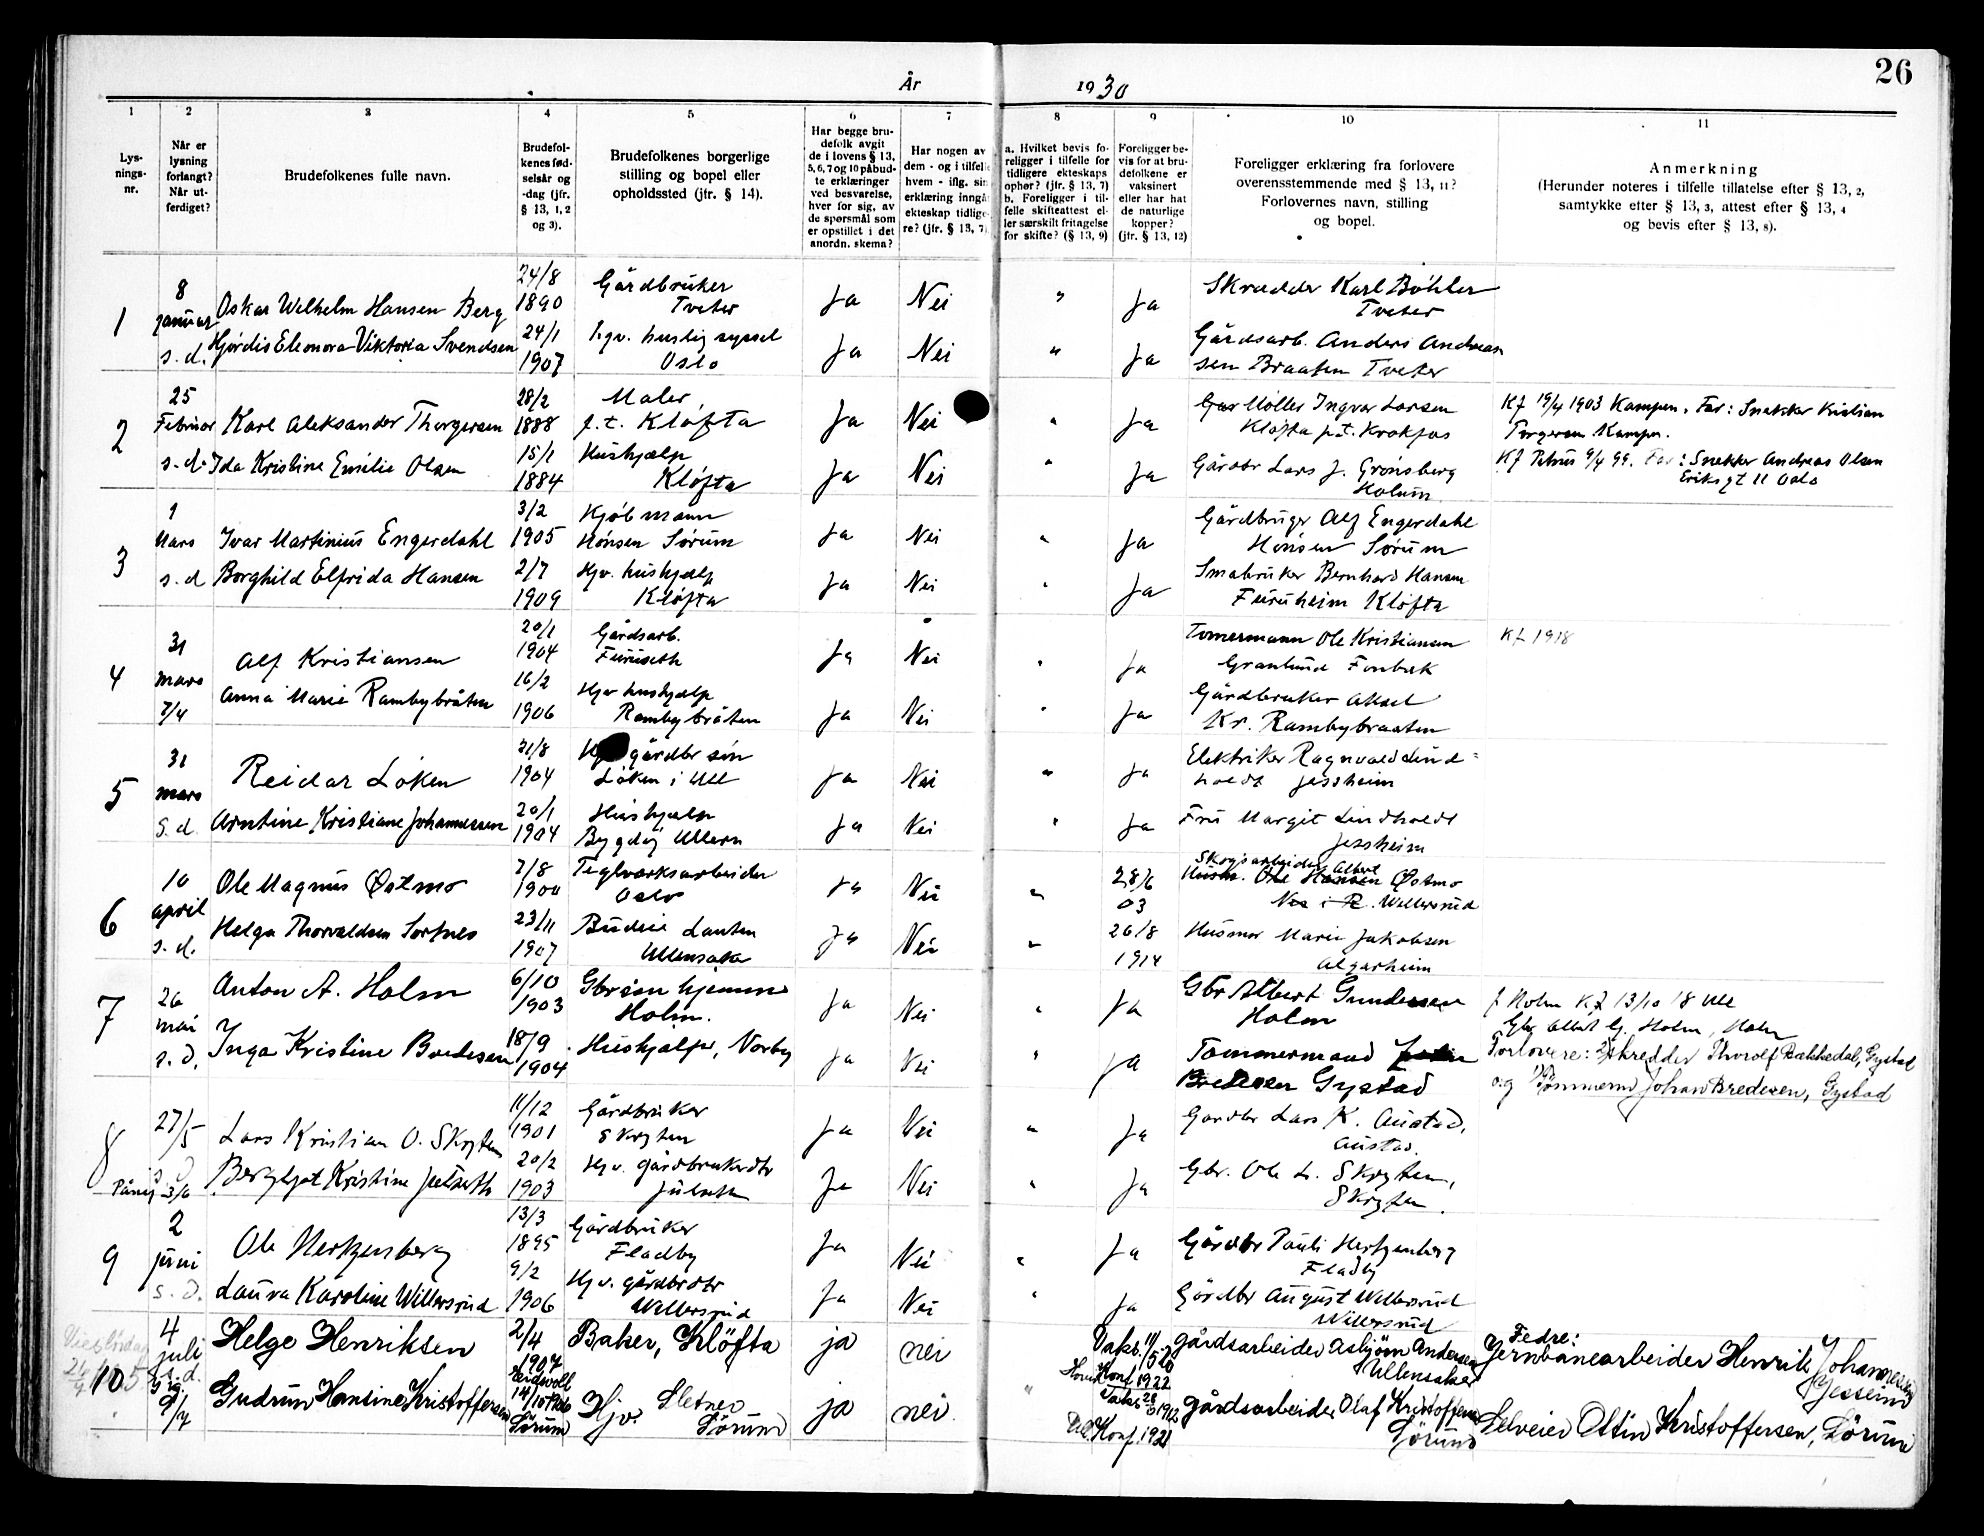 26
År 1930
1 2 3 4 5 6 7 8 9 10 11
Lysningsnr.
Når er lysning forlangt? Når utferdiget?
Brudefolkenes fulle navn.
Brudefolkenes fødselsår og -dag (jfr. § 13, 1, 2 og 3).
Brudefolkenes borgerlige stilling og bopel eller opholdssted (jfr. § 14).
Har begge brudefolk avgit de i lovens § 13, 5, 6, 7 og 10 påbudte erklæringer ved besvarelse, hver for sig, av de spørsmål som er opstillet i det anordn. skema?
Har nogen av dem - og i tilfelle hvem - iflg. sin erklæring inngått ekteskap tidligere? (jfr. § 13, 7)
a. Hvilket bevis foreligger i tilfelle for tidligere ekteskaps ophør? (jfr. § 13, 7)
b. Foreligger i tilfelle skifteattest eller særskilt fritagelse for skifte? (§ 13, 9)
Foreligger bevis for at brudefolkene er vaksinert eller har hat de naturlige kopper? (jfr. § 13, 12)
Foreligger erklæring fra forlovere overensstemmende med § 13, 11? Forlovernes navn, stilling og bopel.
Anmerkning
(Herunder noteres i tilfelle tillatelse efter § 13, 2, samtykke efter § 13, 3, attest efter § 13, 4 og bevis efter § 13, 8).
1 8 januar Oskar Wilhelm Hansen Berg 24/8 1890 Gårdbruker Tveter Ja Nei " Ja Skrædder Karl Böhler Tveter
s.d. Hjórdis Eleonora Viktoria Svendsen 24/1 1907 hgv. huslig syssel Oslo Ja Nei " Ja Gårdsarb. Anders Andreassen Braaten Tveter
2 25 Februar Karl Aleksander Thorgersen 28/2 1888 Maler, f.t. Kløfta Ja Nei " Ja Møller Ingvar Larsen Kløfta p.t. Krokfos Kf 19/4 1903 Kampen. Far: Snekker Kristian Torgersen Kampen.
s.d. Ida Kristine Emilie Olsen 15/1 1884 Hushjælp Kløfta Ja Nei " Ja Gårdbr Lars J. Grønsberg Holum Kf Petrus 9/4 99. Far: Snekker Andreas Olsen Eriksgt 11 Oslo
3 1 Mars Ivar Martinius Engerdahl 3/2 1905 Kjöbmann Hónsen Sørum Ja Nei " Ja Gårdbruger Alf Engerdahl Hónsen Sørum
s.d Borghild Elfrida Hansen 2/7 1909 Hjv. hushjælp Kløfta Ja Nei " Ja Småbruker Bernhard Hansen Furuheim Kløfta
4 31 mars Alf Kristiansen 20/1 1904 Gårdsarb. Furuseth Ja Nei " Ja Tømermann Ole Kristiansen Granlund Fonbæk Kf 1918
7/4 Anna Marie Rambybråten 16/2 1906 Hjv hushjælp Rambybråten Ja Nei " Ja Gårdbruker Aksel Kr. Rambybraaten
5 31 mars Reidar Løken 31/8 1904 gårdbr søn Løken i Ull Ja Nei " Ja Elektriker Ragnvald Lindholdt Jessheim
s.d. Arntine Kristiane Johannessen 20/1 1904 Hushjælp Bygdøy Ullern Ja Nei " Ja Fru Margit Lindholdt Jessheim
6 10 april Ole Magnus Østmo 7/8 1900 Teglverksarbeider Oslo Ja Nei " 28/6 03 Skogsarbeider Albert Hansen Østmo Willersrud
s.d. Helga Thorvaldsen Sørfnes 23/11 1907 Budeie Lauten Ullensaker Ja Nei " 26/8 1914 Husmor Marie Jakobsen Algarheim
7 26 mai Anton A. Holm 6/10 1903 Gbr søn hjemme Holm. Ja Nei " Ja Gbr Albert Gundersen Holm f Holm Kf 13/10 18 Ull Gbr Albert G. Holm, Holm
s.d. Inga Kristine Bredesen 18/9 1904 Hushjælp, Norby Ja Nei " Ja Tømmermand Bredesen Gystad Forlovere: Skredder Thorolf Bakkedal, Gystad og Tømmerm Johan Bredesen, Gystad
8 27/5 Lars Kristian O. Skryten 11/12 1901 Gårdbruker Skryten Ja Nei " Ja Gardbr Lars K. Austad, Austad.
3/6 Bergljot Kristine Julseth 20/2 1903 Hjv. gårdbrukerdtr Julseth Ja Nei " Ja Gbr. Ole L. Skryten, Skryten.
9 2 juni Ole Hertzenberg 13/3 1895 Gårdbruker Fladby Ja Nei " Ja Gårdbr Pauli Hertzenberg Fladby
s.d. Laura Karoline Willersrud 9/2 1906 Hjv. gårdbrdtr Willersrud Ja Nei " Ja Gårdbr August Willersrud Willersrud
10 4 juli Helge Henriksen 2/4 1907 Eidsvoll Baker, Kløfta ja nei Vaks. 11/5 20 Konf 1922 gårdsarbeider Asbjörn Andersen Ullensaker Fedre: Jernbanearbeider Henrik Johannesen Jessheim
s.d. 9/7 Gudrun Hansine Kristoffersen 14/10 1906 Sørum Hjv. Sletner Sørum ja nei " Vaks 1912 Konf. 1921 gårdsarbeider Olaf Kristoffersen Sørum Selveier Ottin Kristoffersen, Sørum